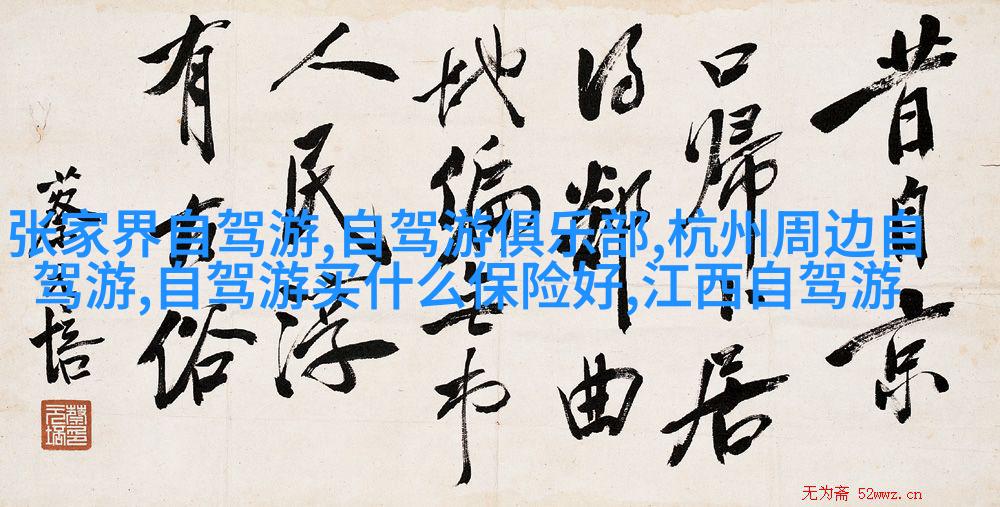 昔自京
口歸卜居
得鄰曲
地偏無市
人民淳
有古俗
蔡元培
张家界自驾游,自驾游俱乐部,杭州周边自
驾游,自驾游买什么保险好,江西自驾游
无为斋 52wwz.cn